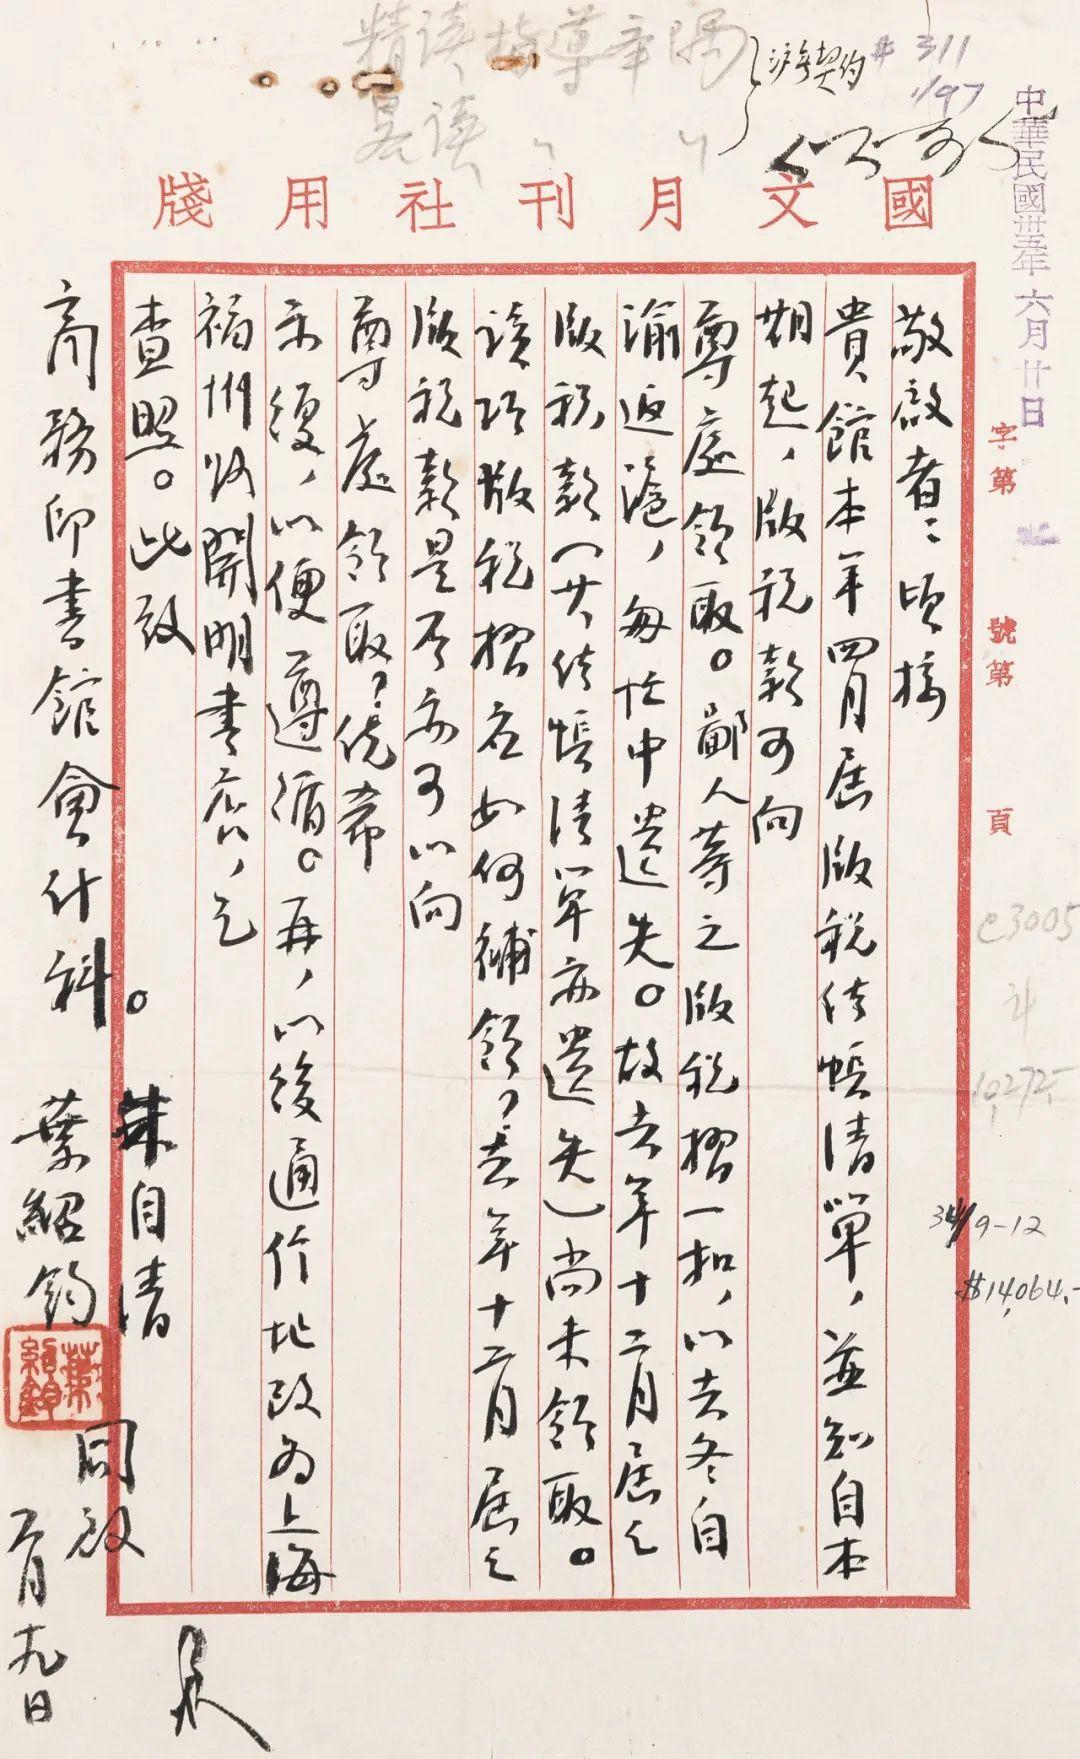 精读指导举隅
略读 〃 〃
滬無契約 # 311
1/97
中華民國卅五年六月廿日
國文月刊社用牋
字第
號第
頁
敬啟者：頃接
貴館本年四月底版稅結帳清單，並知自本
期起，版稅款可向
尊處領取。鄙人等之版稅摺一扣，以去冬自
渝返滬，匆忙中遺失。故去年十二月底之
版稅款（其結帳清單亦遺失）尚未領取。
該項版稅摺應如何補領？去年十二月底之
版稅款是否亦可以向
尊處領取？統希
示復，以便遵循。再，以後通信地址改為上海
福州路開明書店，乞
查照。此致
商務印書館會計科。
朱自清
葉紹鈞
同啟
六月十九日
葉紹鈞
C3005
10,272.-
34/9-12
$14,064.-